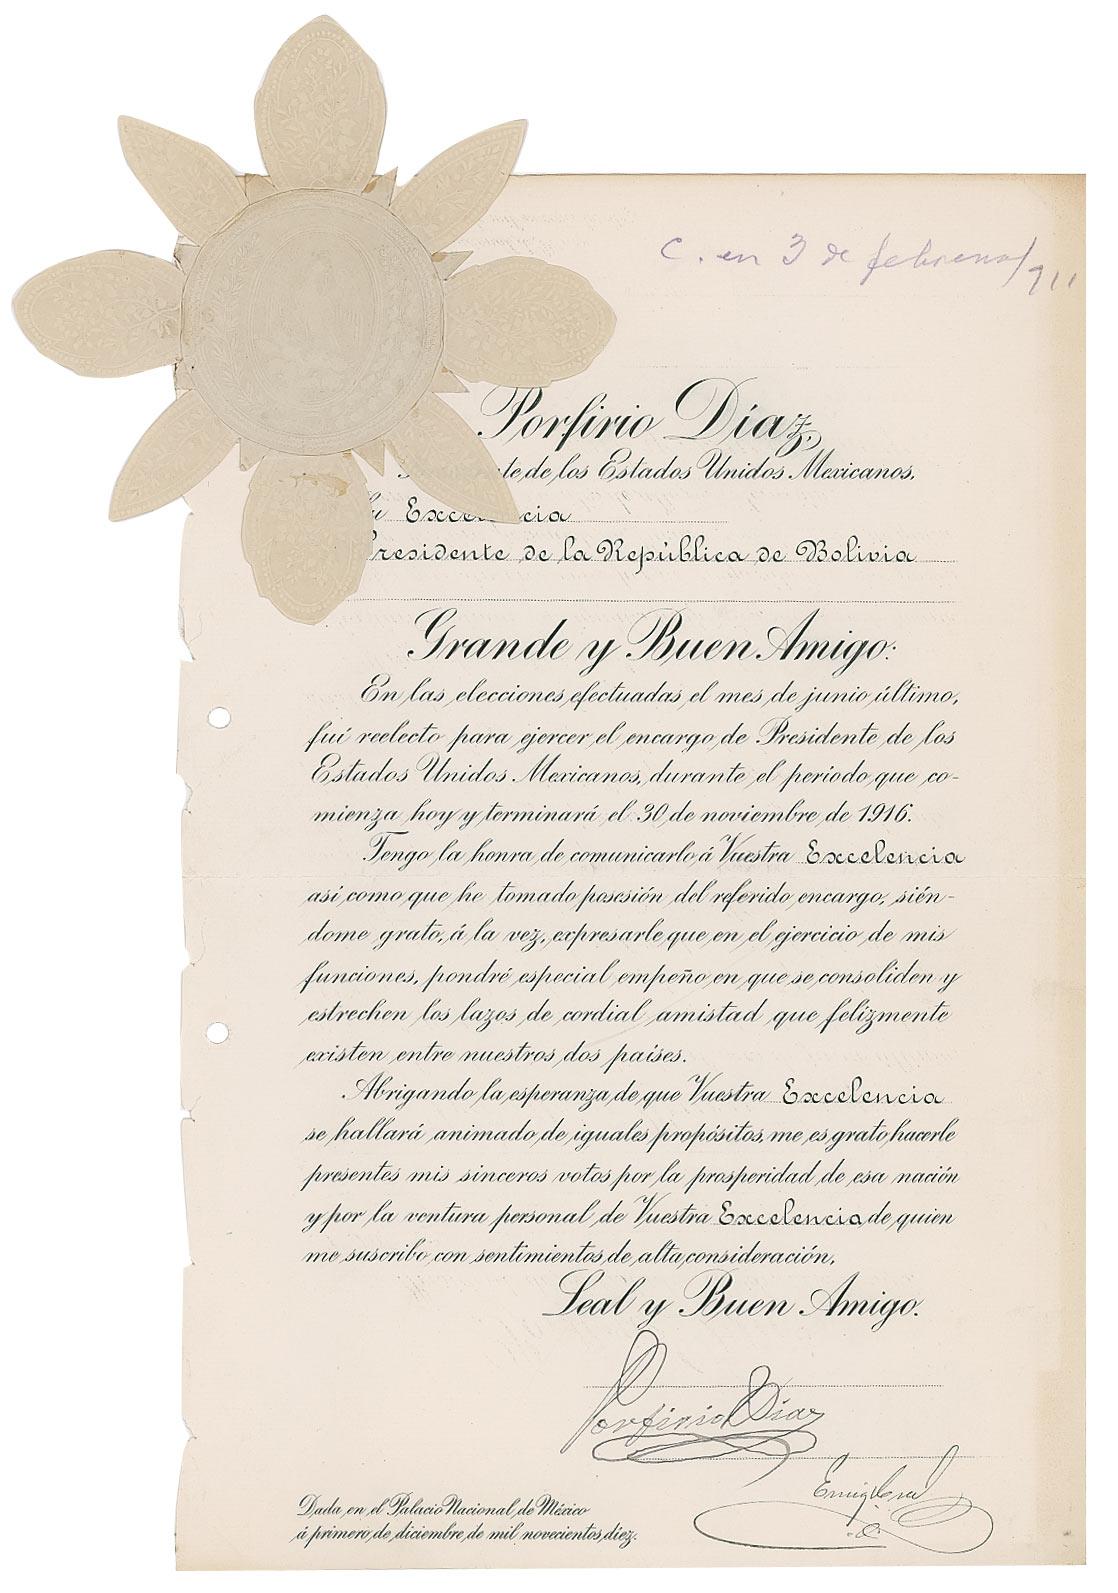 C. en 3 de febrero/911
Porfirio Díaz,
te de los Estados Unidos Mexicanos,
Presidente de la República de Bolivia
Grande y Buen Amigo:
En las elecciones efectuadas el mes de junio último,
fuí reelecto para ejercer el encargo de Presidente de los
Estados Unidos Mexicanos, durante el período que co-
mienza hoy y terminará el 30 de noviembre de 1916.
Tengo la honra de comunicarlo á Vuestra Excelencia
así como que he tomado posesión del referido encargo, sién-
dome grato, á la vez, expresarle que en el ejercicio de mis
funciones, pondré especial empeño en que se consoliden y
estrechen los lazos de cordial amistad que felizmente
existen entre nuestros dos países.
Abrigando la esperanza de que Vuestra Excelencia
se hallará animado de iguales propósitos, me es grato hacerle
presentes mis sinceros votos por la prosperidad de esa nación
y por la ventura personal de Vuestra Excelencia de quien
me suscribo con sentimientos de alta consideración,
Leal y Buen Amigo.
Porfirio Díaz
Dada en el Palacio Nacional de México
á primero de diciembre de mil novecientos diez.